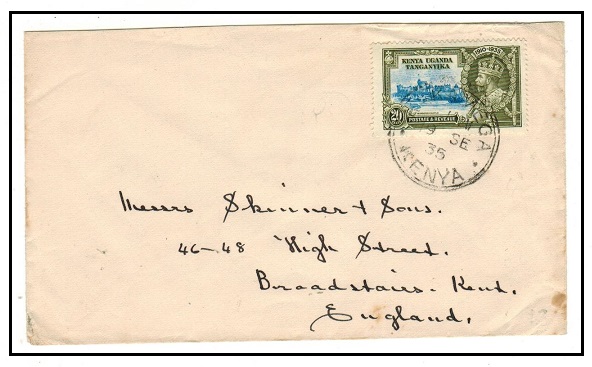 1910-1935
KENYA UGANDA
TANGANYIKA
20
POSTAGE & REVENUE
9 SE
35
KENYA
Messrs Skinner & Sons.
46-48 High Street.
Broadstairs. Kent.
England.